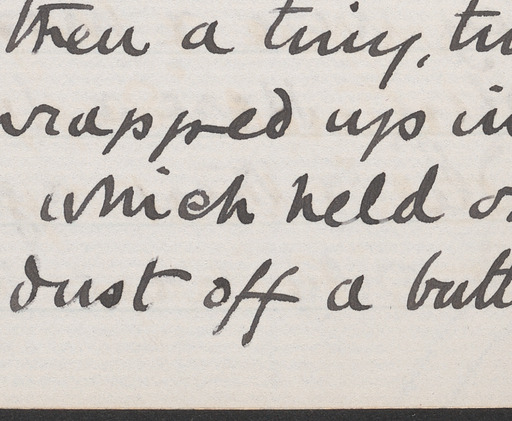 then a tiny, ti
wrapped up in
which held o
dust off a butt